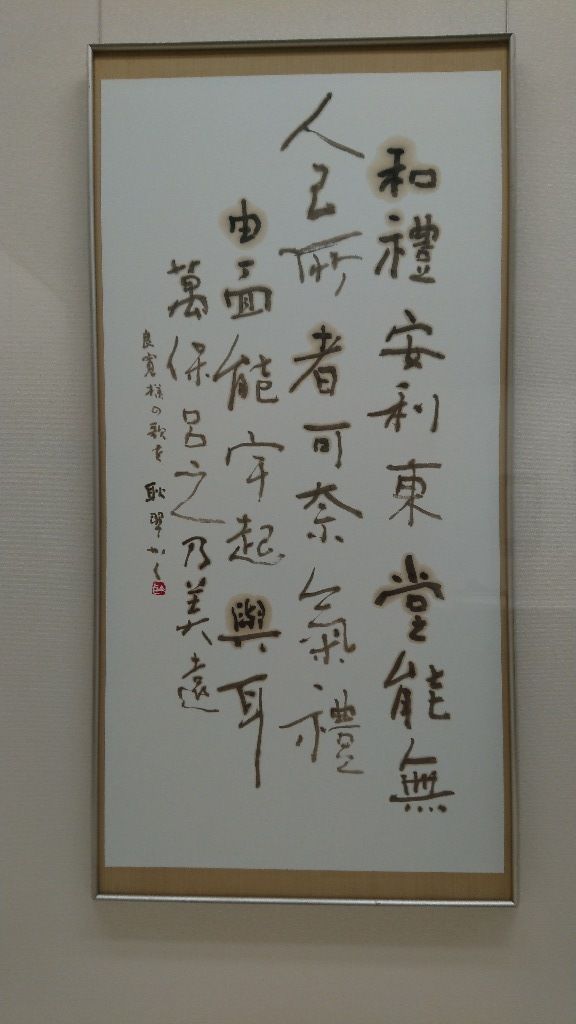 和禮安利東堂能無
人己所者可奈氣禮
由面能宇起與耳
萬保呂之乃美遠
良寛様の歌を 耿翠かく